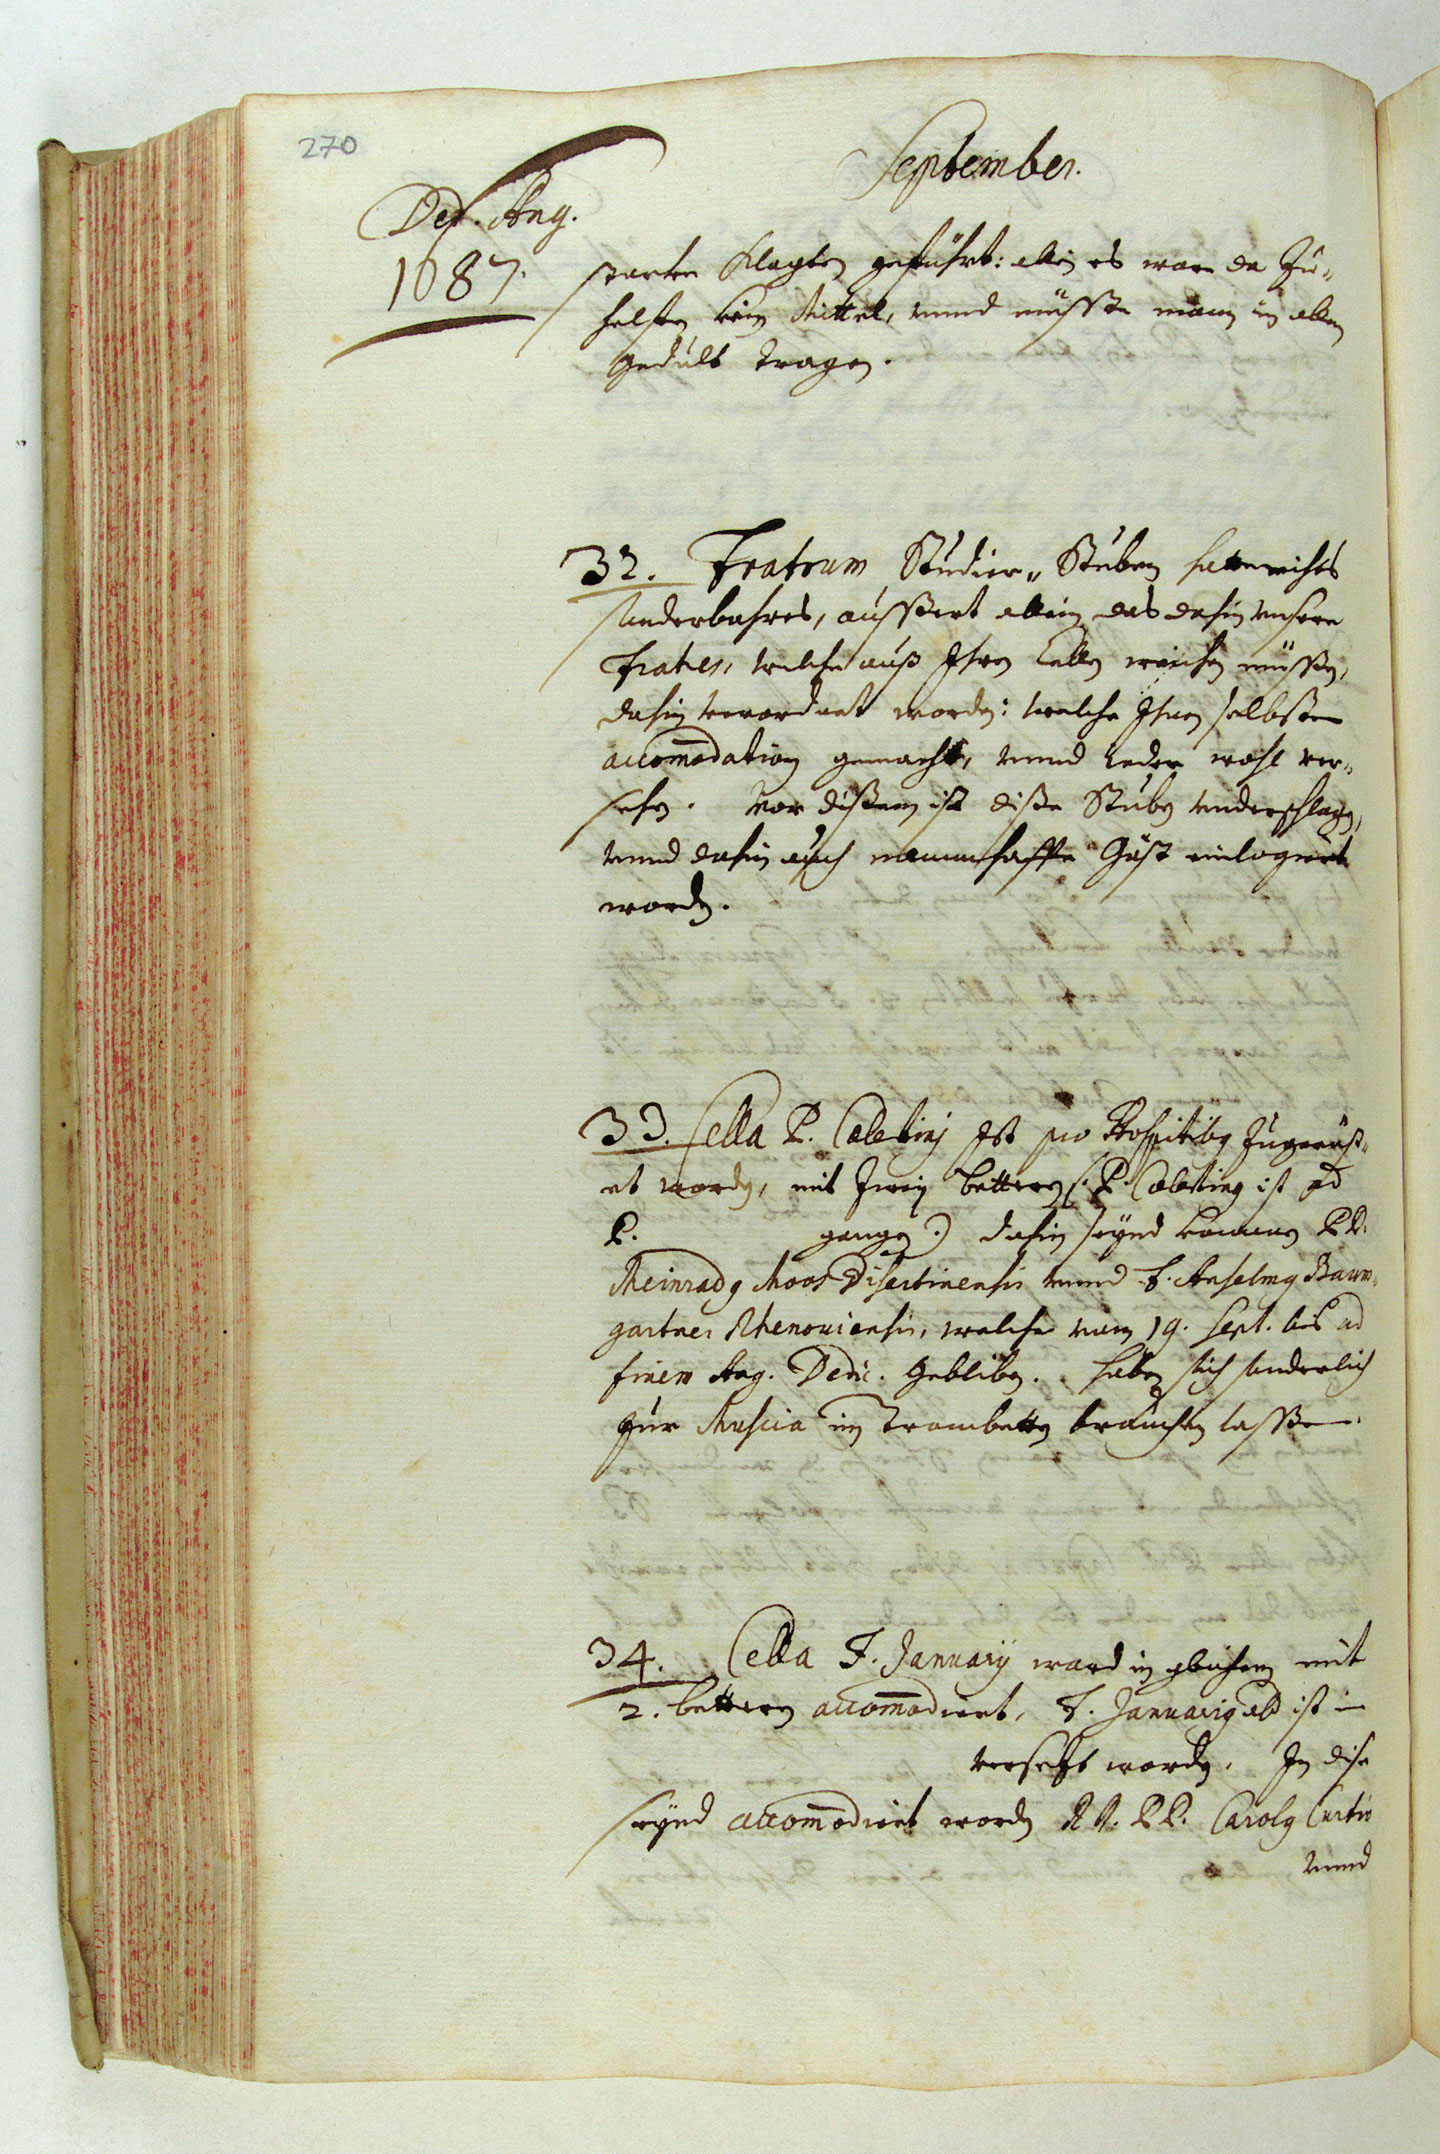 270
September.
Ded. Ang.
1687.
starke Klagten geführt: allein es ware da zu„
helffen kein Mittel, unnd müsste mann in allem
gedult tragen.
32. Fratrum Studier„ Stuben hatte nichts
sonderbahres, aussert allein das dahin unsere
Fratres, welche auß Ihren Cellen weichen müssen,
dahin verordnet worden: welche Ihnen selbsten
accomodation gemacht, unnd Jeder wohl ver„
sehen. Vor dissem ist disse Stuben underschlagen,
unnd dahin auch nammhaffte Gäst einlogiert
worden.
33. Cella P. Cœlestini Ist pro Hospitibus zugerüst„
et worden, mit zwey bettern (: P. Cœlestinus ist ad
P. gangen :) dahin seynd kommen PP.
Meinradus Moos Disertinensis unnd F. Anselmus Baum„
gartner Rhenoviensis, welche vom 19. Sept. bis ad
finem Ang. Dedic. gebliben. haben sich sonderlich
zur Musica in Trombetten brauchen lassen.
34. Cella F. Januarij ward in gleichem mit
2. bettern accomodiert, F. Januarius aber ist in
versetzt worden. In dise
seynd accomodiert worden RR. PP. Carolus Curtin
unnd